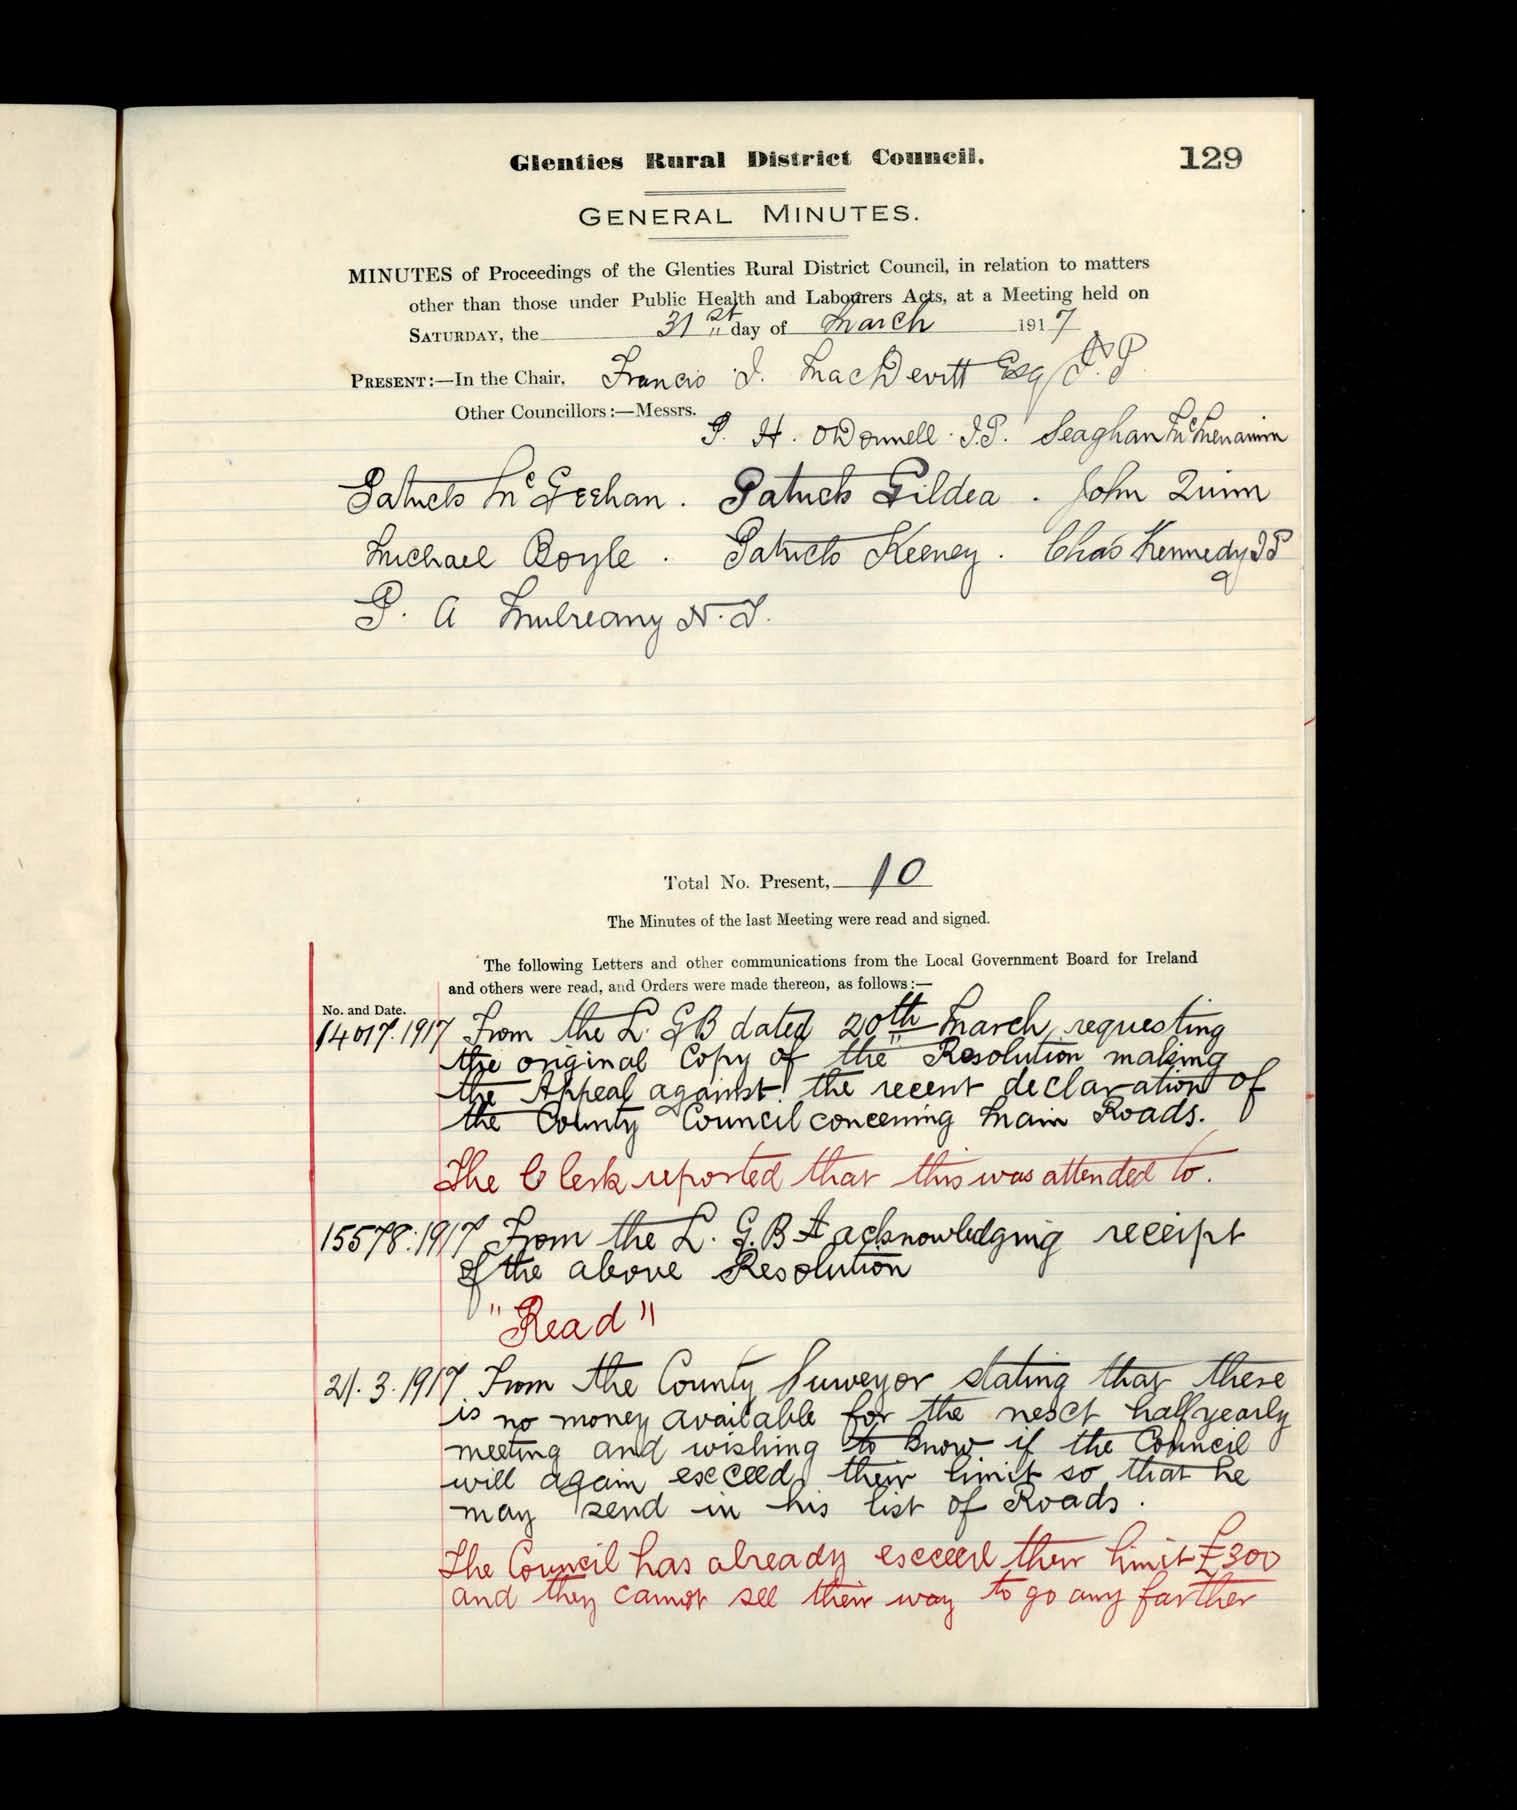 Glenties Rural District Council.
129
GENERAL MINUTES.
MINUTES of Proceedings of the Glenties Rural District Council, in relation to matters
other than those under Public Health and Labourers Acts, at a Meeting held on
SATURDAY, the 31st day of March 1917
PRESENT:—In the Chair, Francis I. MacDevitt Esq J.P.
Other Councillors:—Messrs.
P. H. O'Donnell J.P. Seaghan McMenamin
Patrick McGeehan. Patrick Gildea. John Quinn
Michael Boyle. Patrick Keeney. Chas Kennedy JP
P. A Mulreany N.T.
Total No. Present, 10
The Minutes of the last Meeting were read and signed.
The following Letters and other communications from the Local Government Board for Ireland
and others were read, and Orders were made thereon, as follows:—
No. and Date.
14017.1917 From the L. G B dated 20th March, requesting
the original Copy of the Resolution making
the Appeal against the recent declaration of
the County Council concening Main Roads.
The Clerk reported that this was attended to.
15578:1917 From the L. G.B acknowledging receipt
of the above Resolution
"Read"
21.3.1917 From the County Surveyor stating that there
is no money available for the next halfyearly
meeting and wishing to know if the Council
will again exceed their limit so that he
may send in his list of Roads.
The Council has already exceeed their limit £300
and they cannot see their way to go any farther